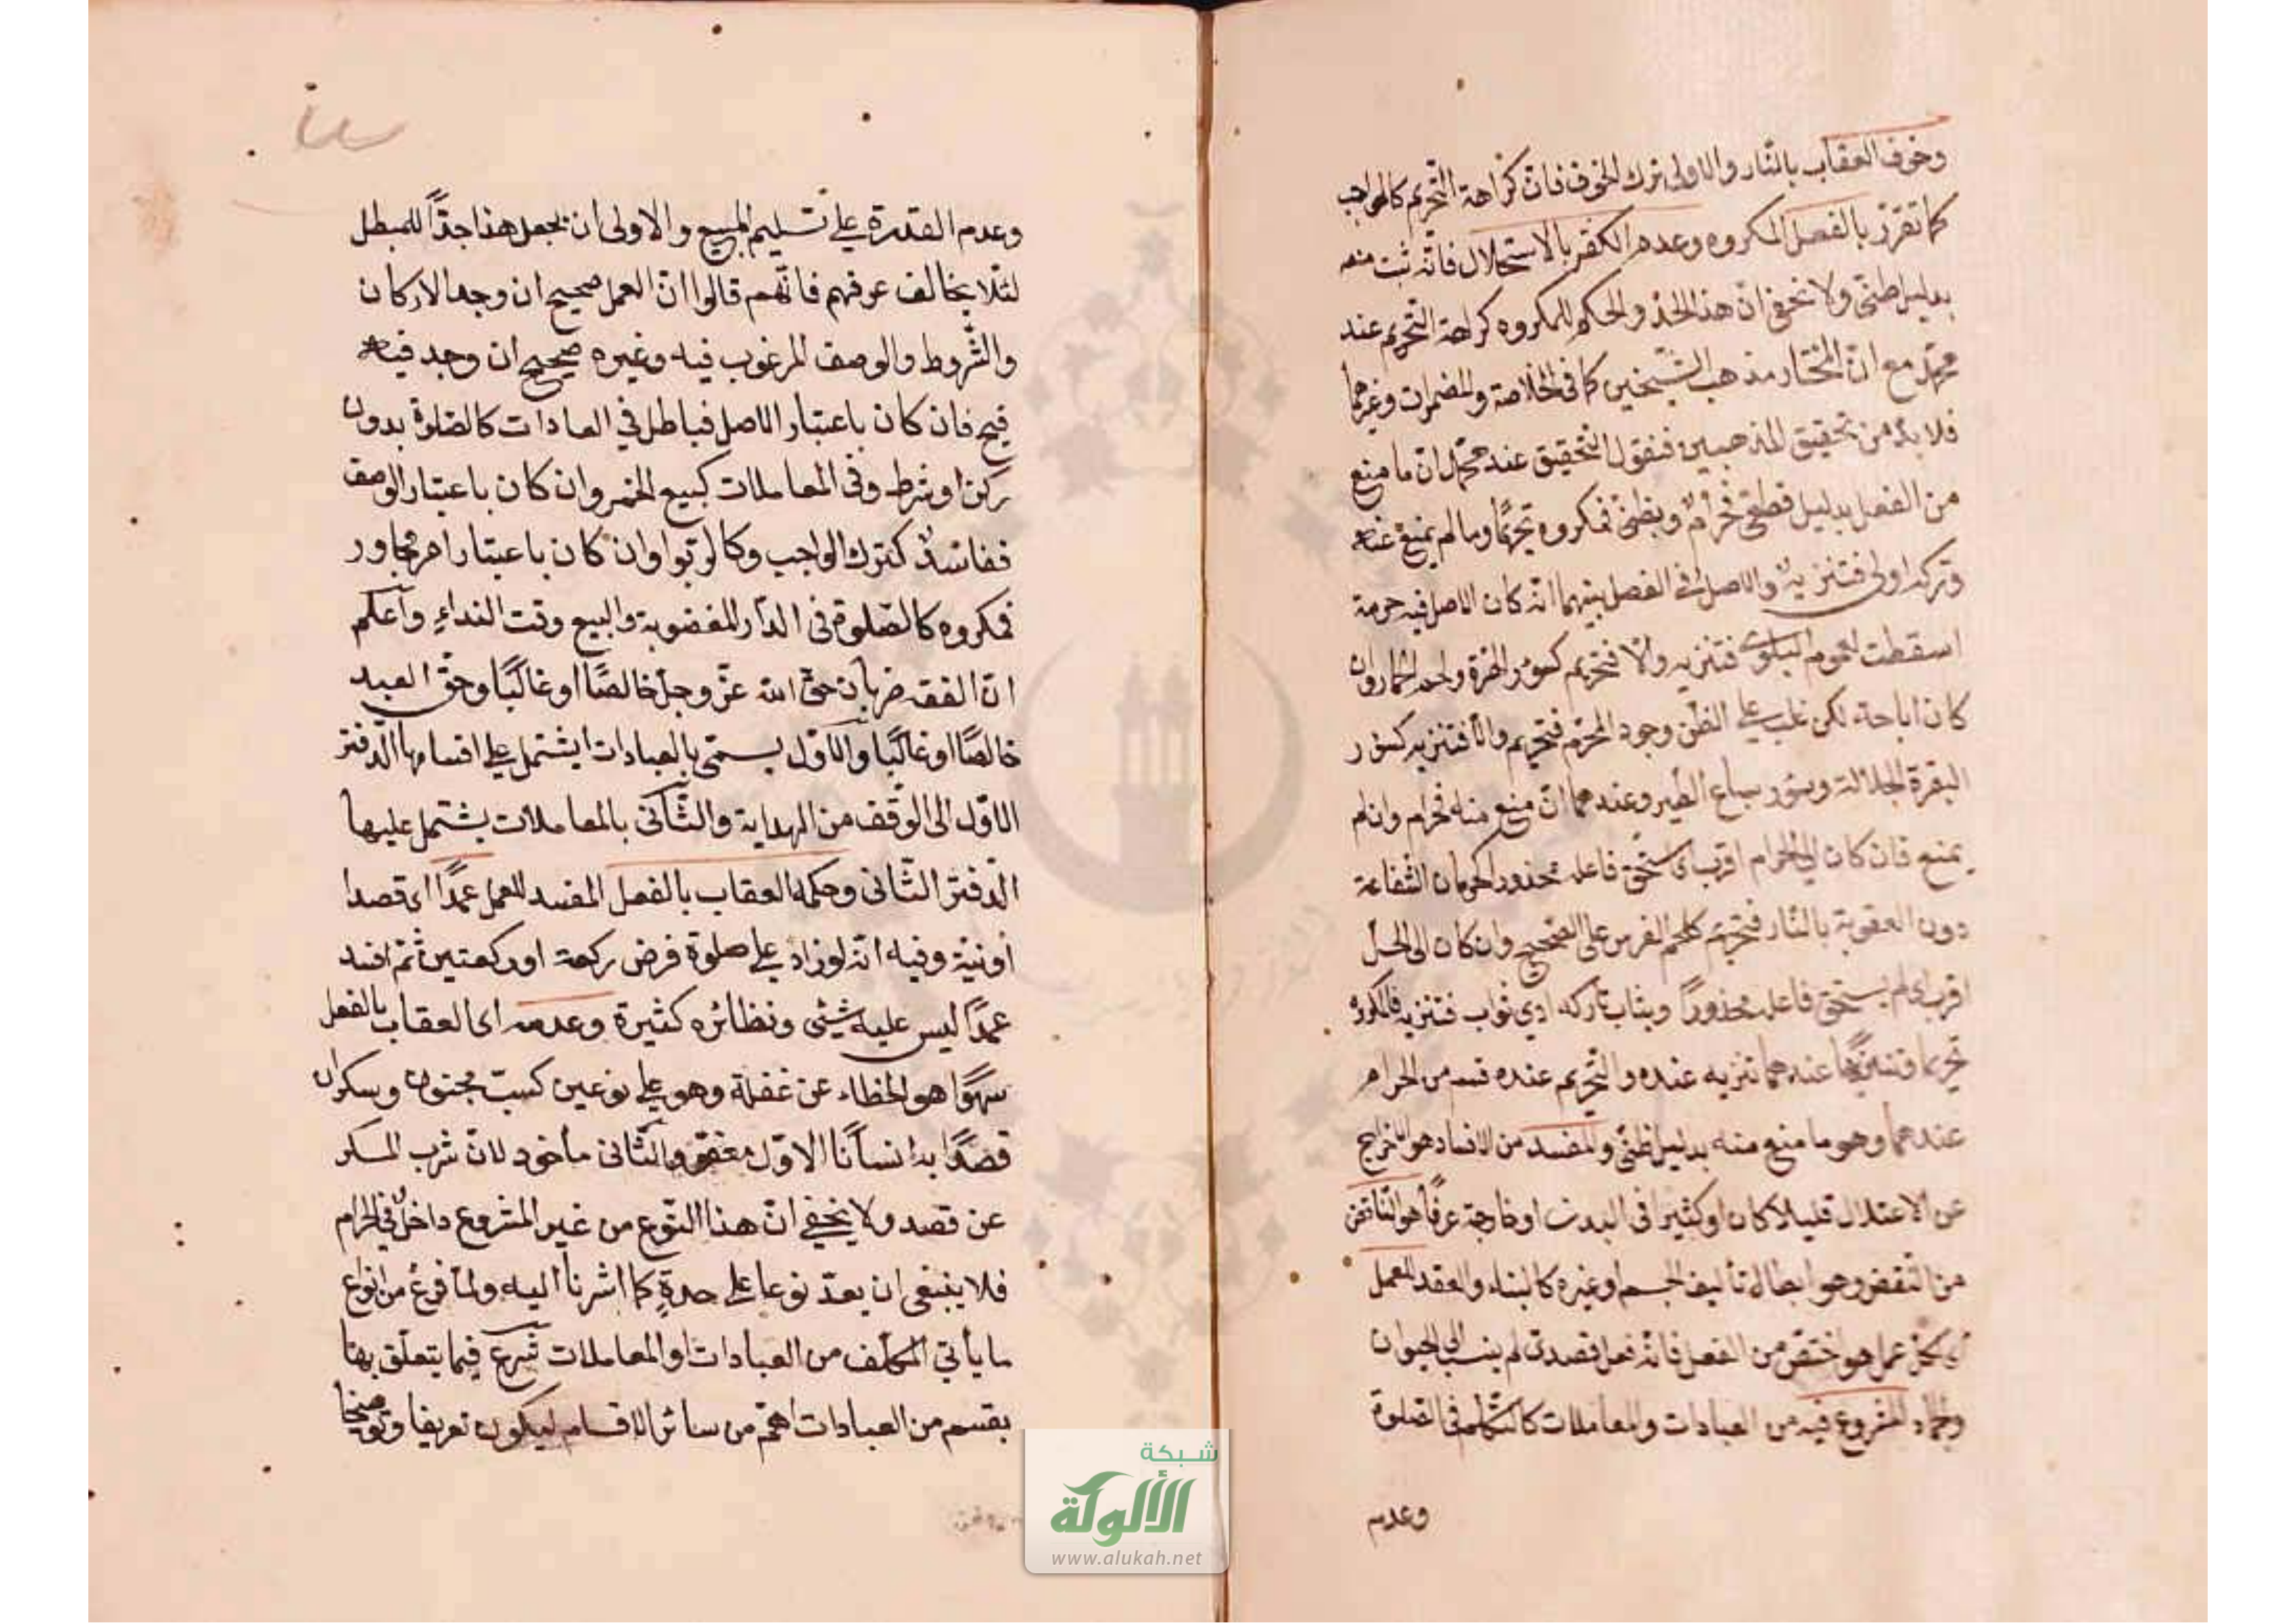 وخوف العقاب بالنار والاولى ترك الخوف فانّ كراهة التّحريم كالواجب
كما تقرّر بالفعل المكروه وعدم الكفر بالاستحلال فانّه ثبت منعه
بدليل ظنّى ولا يخفى انّ هذا الحدّ والحكم للمكروه كراهة التّحريم عند
محمّد مع انّ المختار مذهب الشّيخين كما فى الخلاصة والمضمرات وغيرهما
فلا بدّ من تحقيق المذهبين فنقول التّحقيق عند محمّد انّ ما منع
من الفعل بدليل قطعىّ فحرامٌ وبظنّى فمكروه تحريمًا وما لم يمنع عنه
وتركه اولى فتنزيهٌ والاصل فى الفصل بينهما انّه كان الاصل فيه حرمة
اسقطت لعموم البلوى فتنزيه والّا فتحريم كسؤر الهرّة ولحم الحمار وان
كان اباحة لكن غلب على الظّن وجود المحرّم فتحريم والّا فتنزيه كسؤر
البقرة الجلّالة وسؤر سباع الطّير وعندهما انّ منع منه فحرام وان لم
يمنع فان كان الى الحرام اقرب اى يستحقّ فاعله محذورا كحرمان الشّفاعة
دون العقوبة بالنّار فتحريم كلحم الفرس على الصّحيح وان كان الى الحلّ
اقرب اى لم يستحقّ فاعله محذورًا ويثاب تاركه ادنى ثواب فتنزيه فالمكروه
تحريما وتنزيهًا عندهما تنزيه عنده والتّحريم عنده قسم من الحرام
عندهما وهو ما منع منه بدليل ظنّى والمفسد من الافساد هو الاخراج
عن الاعتدال قليلا كان او كثيرا فى البدن او خارجه عرفًا هو النّاقض
من النّقض وهو ابطال تأليف الجسم او غيره كالبناء والعقد للعمل
عمل هو اخصّ من الفعل فانّه فعل قصدىّ لم ينسب الى الحيوان
والجماد المشروع فيه من العبادات والمعاملات كالتّكلّم فى الصّلوة
وعدم
وعدم القدرة على تسليم المبيع والاولى ان يجعل هذا حدًّا للمبطل
لئلّا يخالف عرفهم فانّهم قالوا انّ العمل صحيح ان وجد الاركان
والشّروط والوصف المرغوب فيه وغيره صحيح ان وجد فيه
قبح فان كان باعتبار الاصل فباطل فى العبادات كالصّلوة بدون
ركن او شرط وفى المعاملات كبيع الخمر وان كان باعتبار الوصف
ففاسدٌ كترك الواجب وكالرّبوا وان كان باعتبار امر مجاور
فمكروه كالصّلوة فى الدّار المغضوبة والبيع وقت النداء واعلم
انّ الفقه ضربان حقّ الله عزّ وجلّ خالصًا او غالبًا وحقّ العبد
خالصًا او غالبًا والاوّل يسمّى بالعبادات يشتمل على اقسامها الدّفتر
الاوّل الى الوقف من الهداية والثّانى بالمعاملات يشتمل عليها
الدّفتر الثّانى وحكمه العقاب بالفعل المفسد للعمل عمدًا اى قصدا
او نيّة وفيه انّه لو زاد على صلوة فرض ركعة او ركعتين ثمّ افسد
عمدًا ليس عليه شيئى ونظائره كثيرة وعدمه اى العقاب بالفعل
سهوًا هو الخطاء عن غفلة وهو على نوعين كسبّ مجنون وسكران
قصدًا به انسانًا الاوّل معفوّ والثّانى مأخوذ لانّ شرب المسكر
عن قصد ولا يخفى انّ هذا النّوع من غير المشروع داخلٌ فى الحرام
فلا ينبغى ان يعدّ نوعا على حدةٍ كما اشرنا اليه ولمّا فرغ من انواع
ما يأتى المكلّف من العبادات او المعاملات شرع فيما يتعلّق بها
بقسم من العبادات اهمّ من سائر الاقسام ليكون تعريفا وتوضيحا
شبكة
الألوكة
www.alukah.net